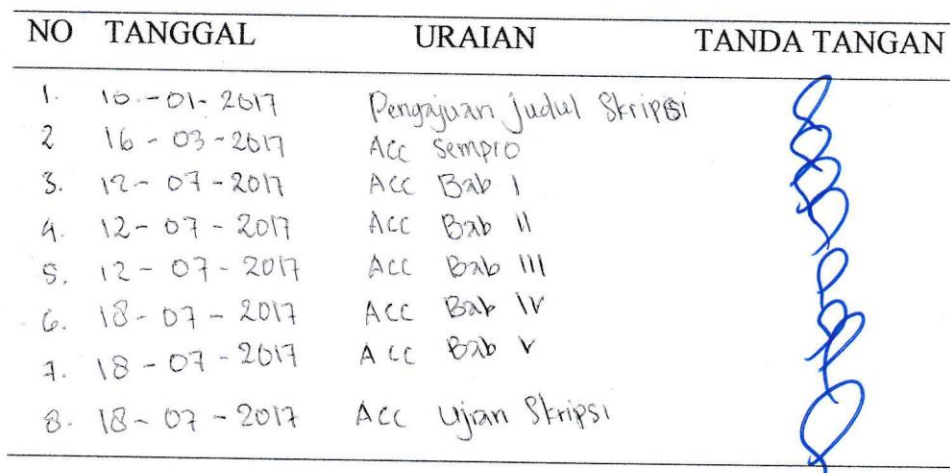 NO TANGGAL URAIAN TANDA TANGAN
1. 10-01-2017 Pengajuan Judul Skripsi
2 16-03-2017 Acc Sempro
3. 12-07-2017 Acc Bab I
4. 12-07-2017 Acc Bab II
5. 12-07-2017 Acc Bab III
6. 18-07-2017 Acc Bab IV
7. 18-07-2017 Acc Bab V
8. 18-07-2017 Acc Ujian Skripsi